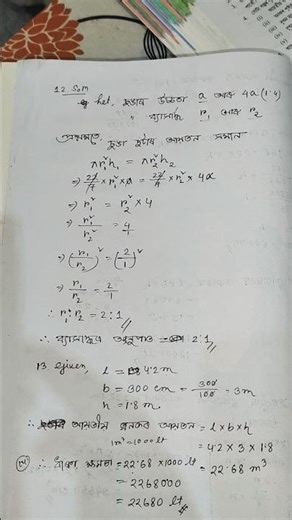 12 Soln
Let, চুঙাৰ উচ্চতা a আৰু 4a (1:4)
" ব্যাসাৰ্দ্ধ r₁ আৰু r₂
প্ৰশ্নমতে, চুঙা দুটাৰ আয়তন সমান
πr₁²h₁ = πr₂²h₂
⇒ 22/7 × r₁² × a = 22/7 × r₂² × 4a
⇒ r₁² = r₂² × 4
⇒ r₁²/r₂² = 4/1
⇒ (r₁/r₂)² = (2/1)²
⇒ r₁/r₂ = 2/1
∴ r₁:r₂ = 2:1
∴ ব্যাসাৰ্দ্ধৰ অনুপাত = 2:1
13 Given, l = 4.2 m
b = 300 cm = 300/100 = 3m
h = 1.8 m
∴ আয়তীয় ঘনকৰ আয়তন = l × b × h
1m³ = 1000 lt = 4.2 × 3 × 1.8
= 22.68 m³
∴ ক্ষমতা = 22.68 × 1000 lt
= 2268000
= 22680 lt